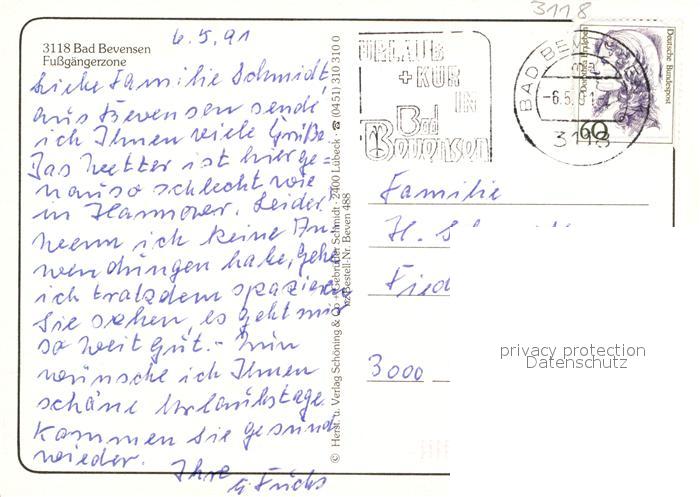 3118
3118 Bad Bevensen
Fußgängerzone
6.5.91
Liebe Familie Schmidt,
aus Bevensen sende
ich Ihnen viele Grüße.
Das Wetter ist hier ge=
nauso schlecht wie
in Hannover. Leider.
Wenn ich keine An
wendungen habe, gehe
ich trotzdem spazieren
Sie sehen, es geht mir
so weit gut. - Nun
wünsche ich Ihnen
schöne Urlaubstage.
Kommen Sie gesund
wieder. Ihre
G. Fuchs
© Herst. u. Verlag Schöning & Co + Gebrüder Schmidt · 2400 Lübeck ☎ (0451) 310 310 0
Bestell-Nr. Beven 488
URLAUB
+ KUR
IN
Bad
Bevensen
BAD BEVENSEN
-6.5.91
3118
Deutsche Bundespost
60
Familie
H. S
Fried
3000
privacy protection
Datenschutz